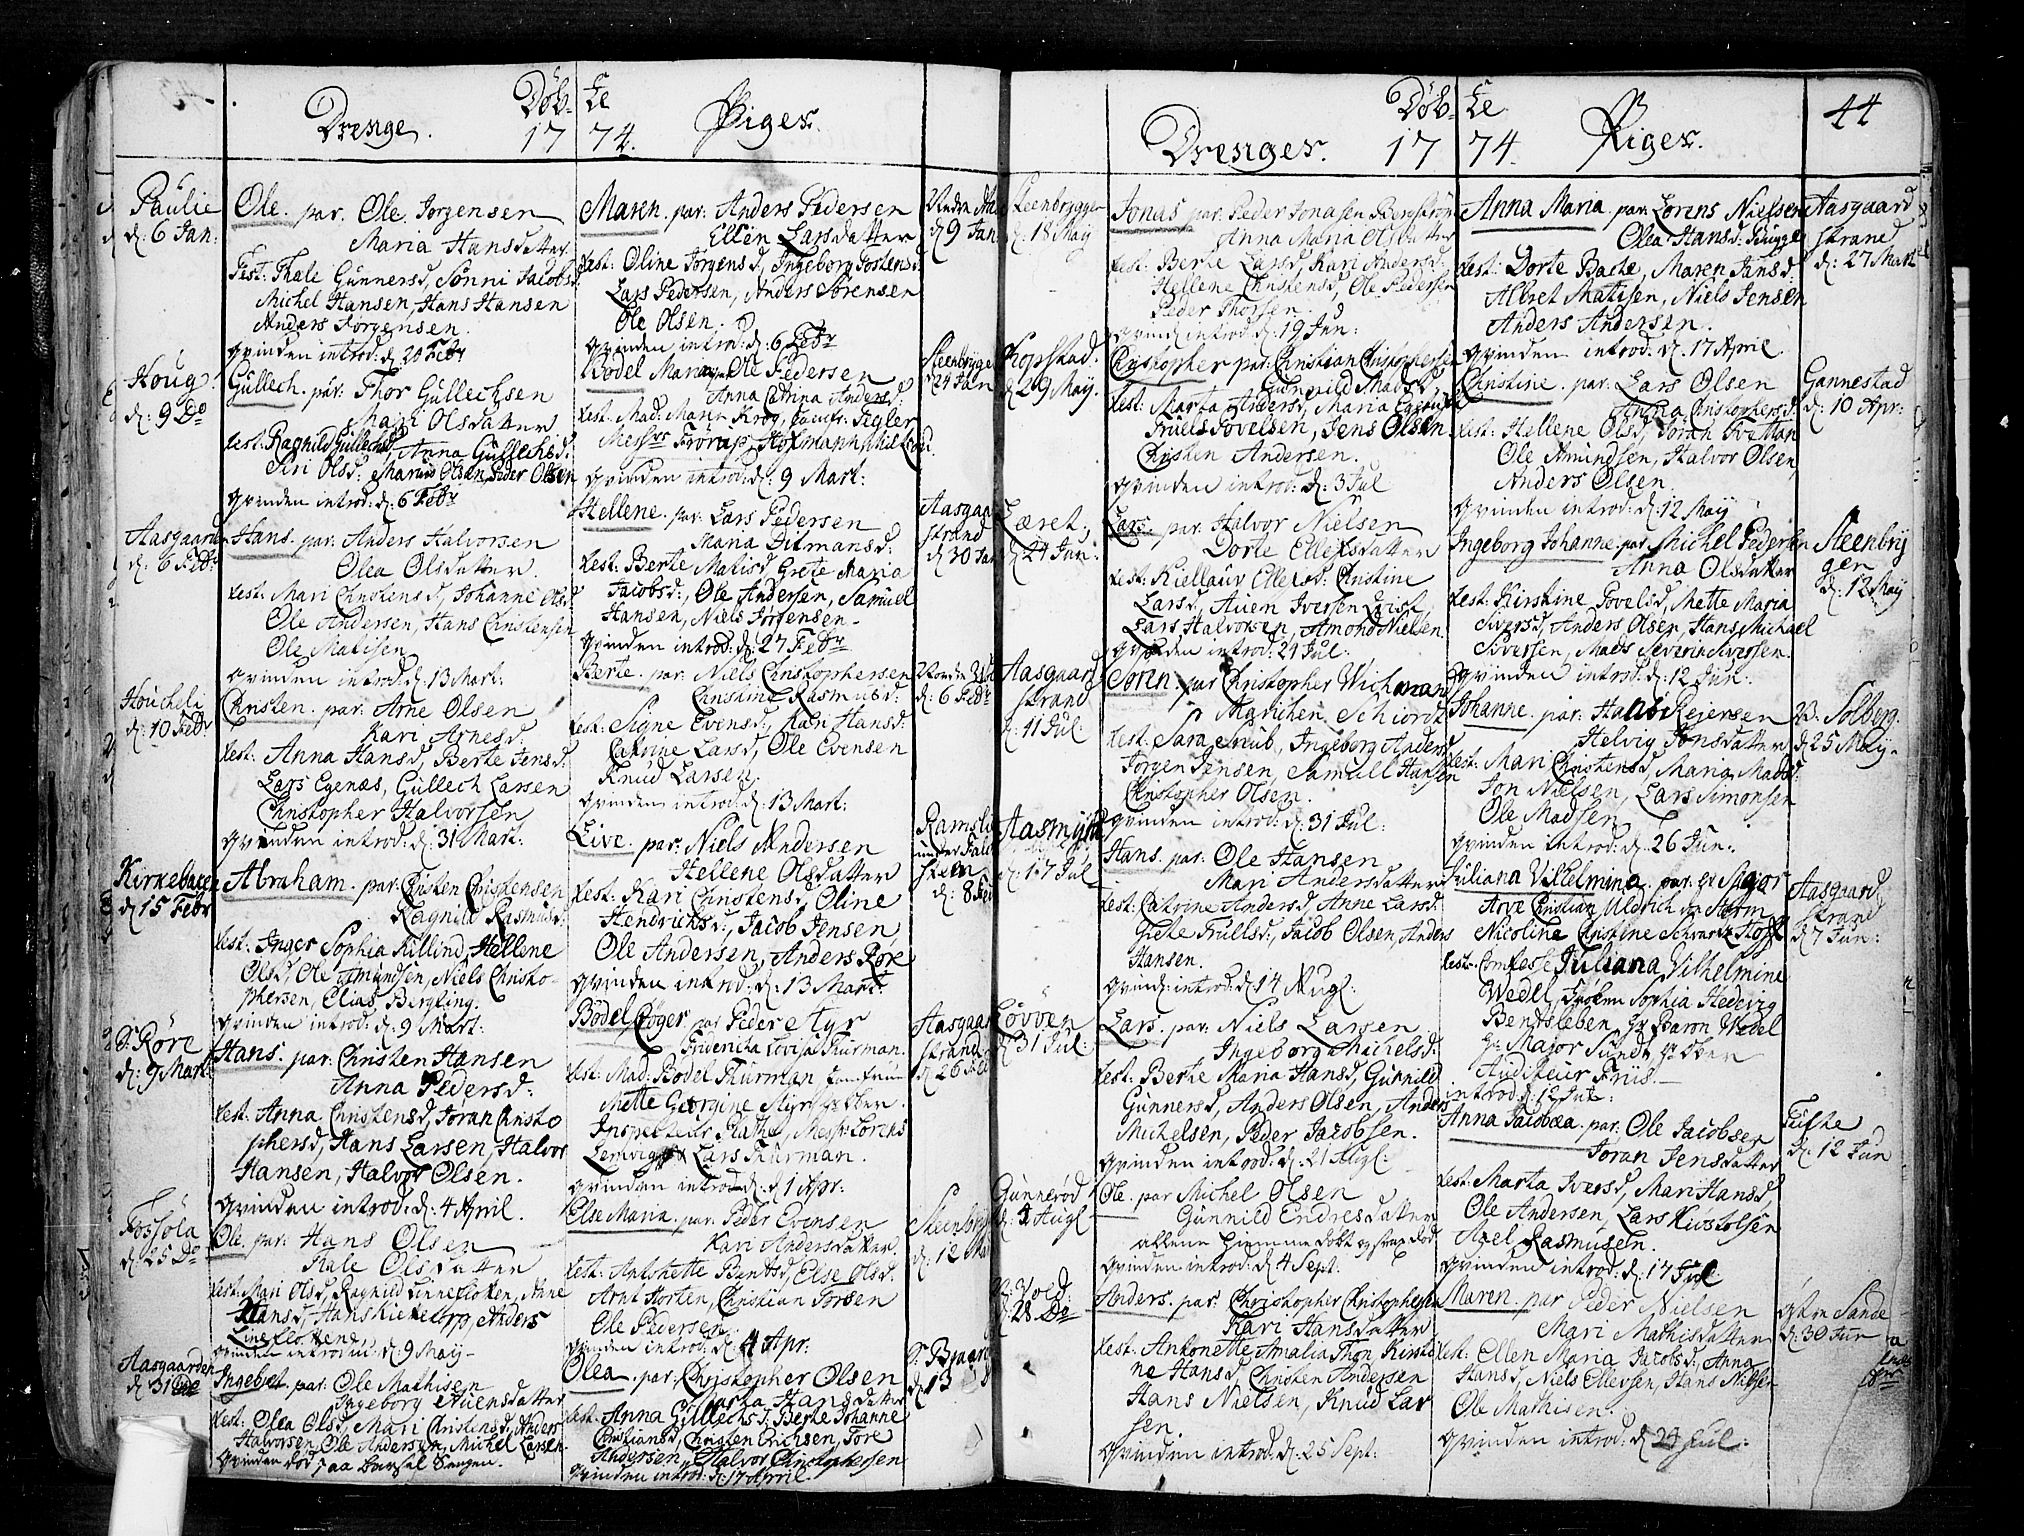 Døb-
te
Drenge.
17
74.
Piger.
Paulie
d: 6 Jan:
Ole. par. Ole Jørgensen
Maria Hansdatter
Test: Thale Gunnersd, Sønni Jacobsd
Michel Hansen, Hans Hansen
Anders Jørgensen.
qvinden introd: d: 20 Febr
Houg.
d: 9 Do
Gullech. par. Thor Gullechsen
Mari Olsdatter
test: Ragnild Gullechsd, Anna Gullechsd.
Siri Olsd: Marius Olsen, Peder Olsen
qvinden introd: d: 6 Febr
Aasgaarden
d: 6 Febr
Hans. par: Anders Halvorsen
Olea Olsdatter.
test: Mari Christensd, Johanne Olsd
Ole Andersen, Hans Christensen
Ole Matisen
qvinden introd: d: 13 Mart:
Houcheli
d: 10 Febr
Christen. par: Arne Olsen
Kari Arnesd.
test: Anna Hansd, Berte Jensd.
Lars Egenæs, Gullech Larsen
Christopher Halvorsen
qvinden introd: d: 31 Mart:
Kirkebacen
d 15 Febr
Abraham. par: Christen Christensen
Ragnild Rasmusd:
test: Inger Sophia Killind, Hellene
Olsd, Ole Amundsen, Niels Christo-
phersen, Elias Bergling.
qvinden introd: d: 9 Mart:
Røre
d: 9 Mart:
Hans. par: Christen Hansen
Anna Pedersd:
test: Anna Christensd, Joran Christo
phersd, Hans Larsen, Halvor
Hansen, Halvor Olsen.
qvinden introd: d: 4 April.
Fossola
d: 25 Do
Ole. par: Hans Olsen
Kale Olsdatter
test: Mari Olsd, Ragnild Linnesloken, Anne
Hansd, Hans Kieketorp, Anders
qvinden introd: d: 9 Maij
Aasgaarden
d: 31
Ingebret. par: Ole Mathisen
Ingeborg Evensdatter
test: Olea Olsd, Mari Christensd, Anders
Halvorsen, Ole Andersen, Michel Larsen
qvinden dod paa barsel Sængen.
Maren. par: Anders Pedersen
Ellen Larsdatter
test: Oline Jørgensd, Ingeborg Jostensd:
Lars Pedersen, Anders Sørensen
Ole Olsen.
qvinden introd: d: 6 Febr
d 9 Jan
Bodel Maria par Ole Pedersen
Anna Catrina Andersd:
test: Mad: Mane Krog, Jomfr: Tegler
Messrs Frørup, Hofmann,
qvinden introd: d: 9 Mart:
Steenbrygge
d 24 Jan
Hellene. par: Lars Pedersen
Maria Ditmansd:
test: Berte Matisd Grete Maria
Jacobsd:, Ole Andersen, Samuel
Hansen, Niels Jørgensen.
qvinden introd: d: 27 Febr
Aasgaar
strand
d 30 Jan
Berte. par: Niels Christophersen
Christine Rasmusd:
test: Signe Evensd, Kari Hansd:
Catrine Larsd, Ole Evensen
Knud Larsen.
qvinden introd: d: 13 Mart:
d: 6 Febr
Live. par: Niels Andersen
Hellene Olsdatter
test: Kari Christensd, Oline
Hendrichsd:, Jacob Jensen
Ole Andersen, Anders Røre
qvinden introd: d: 13 Mart:
Ramsli
under Fald
sten
d: 8 Feb
Bodel Røger par Peder Styr
Friderica Lovisa Thurman.
test: Mad: Bodel Thurman Jomfruer
Mette Georgine Styr, Hr Ober
Inspecteur Plathe, Messr: Lorens
Lemvig, Lars Thurman.
qvinden introd: d: 1 Apr:
Aasgaar
strand
d 26 Feb
Else Maria. par: Peder Evensen
Kari Andersdatter
test: Antonette Bentsd, Else Olsd.
Arnt Horten, Christian Torsen
Ole Pedersen
qvinden introd: d: 4 Apr:
Steenbryg
d: 12 Ma
Olea. par: Christopher Olsen
Marta Hansdatter
test: Anna Gullechsd: Berte Johanne
Christiansd, Christen Erichsen, Tore
Andersen, Halvor Christophersen
qvinden introd: d: 17 April.
Braar
d 13
Døb-
te
44
Drenger.
17
74.
Piger.
Steenbryggen
d: 18 Maij
Jonas par: Peder Jonasen Bergstrøm
Anna Maria Olsdatter
test: Berte Larsd, Kari Andersd.
Hellene Christensd, Ole Pedersen
Peder Thorsen.
qvind introd: d: 19 Jun:
Kopstad.
d 29 Maij.
Christopher par: Christian Christophersen
Gunnild Madsd.
test: Marta Andersd, Maria
Truels Povelsen, Jens Olsen
Christen Andersen.
qvinden introd: d: 3 Jul
Læret.
d: 24 Jun:
Lars. par: Halvor Nielsen
Dorte Ellefsdatter
test: Kiellaug Ellefsd: Christine
Larsd, Auen Iversen Qvist,
Lars Halvorsen, Amond Nielsen.
qvinden introd: 21 Jul:
Aasgaard
strand
d: 11 Jul:
Søren. par Christopher Wichman
Marichen Schiordt
test: Sara Snub, Ingeborg Andersd
Jørgen Jensen, Samuel Hansen
Christopher Olsen.
qvinden introd: d: 31 Jul:
Aasmyhr
d: 17 Jul
Hans. par: Ole Hansen
Mari Andersdatter
test: Catrine Andersd, Anne Larsd.
Grete Trullsd:, Jacob Olsen, Anders
Hansen.
qvind: introd: d 14 Augl:
Løvven
d 31 Jul:
Lars. par: Niels Larsen
Ingeborg Michelsd:
test: Berte Maria Hansd, Gunnild
Gunnersd, Anders Olsen, Anders
Michelsen, Peder Jacobsen.
qvinden introd: d: 21 Augl:
Gunnerød
d: 1 Augl
Ole. par Michel Olsen
Gunnild Endresdatter
allene hiemme døbt og strax død
qvinden introd: d: 4 Sept:
Voed:
d: 28 Do
Anders. par: Christopher Christophersen
Kari Hansdatter
test: Antonette Amalia Thon, Kirsti
ne Hansd, Christen Andersen
Hans Nielsen, Knud Lar
sen.
qvinden introd: d: 25 Sept:
Anna Maria. par: Lorens Nielsen
Olea Hansd: Bugge
test: Dorte Basse, Maren Jansd.
Albret Matisen, Niels Jensen
Anders Andersen.
qvinden introd. d: 17 April
Aasgaard
strand
d: 27 Mart
Christine. par: Lars Olsen
Anna Christophersd
test: Hellene Olsd, Joran Tvetten
Ole Amundsen, Halvor Olsen
Anders Olsen.
qvinden introd: d: 12 Maij
Gannestad
d: 10 Apr:
Ingeborg Johanne. par: Michel Pedersen
Anna Olsdatter
test: Kirstine Povelsd, Mette Maria
Siversd, Anders Olsen, Hans Michael
Siversen, Mads Severin Siversen.
qvinden introd: d: 12 Jun.
Steenbryg
gen
d: 12 Maij
Johanne. par: Halvor Reiersen
Helvig Jonsdatter
test: Mari Christensd, Maria Madsd:
Jon Nielsen, Lars Simonsen
Ole Madsen
qvinden introd: d: 26 Jun:
Solberg.
d 25 Maij-
Juliana Vilhelmina. par: hr Major
Arve Christian Uldrich von Storm
Nicoline Christine Schwartzkopf
test: Comtesse Juliana Vilhelmine
Wedel, Frøken Sophia Hedevig
Bendtsleben, hr Baron Wedel
hr Major Sundt, hr Ober
Auditeur Friis.
introd: d: 12 Jul:
Aasgaard
strand
d 7 Jun:
Anna Jacobæa. par: Ole Jacobsen
Joran Jensdatter
test: Marta Iversd, Mari Hansd,
Ole Andersen, Lars Kiøstolsen
Axel Rasmusen.
qvinden introd: d: 17 Jul
Tufte
d: 12 Jun
Maren. par Peder Nielsen
Mari Mathisdatter
test: Ellen Maria Jacobsd, Anna
Hansd, Niels Ellevsen, Hans Nilsen
Ole Mathisen.
qvinden introd: d 24 Jul:
Sande
d: 30 Jun